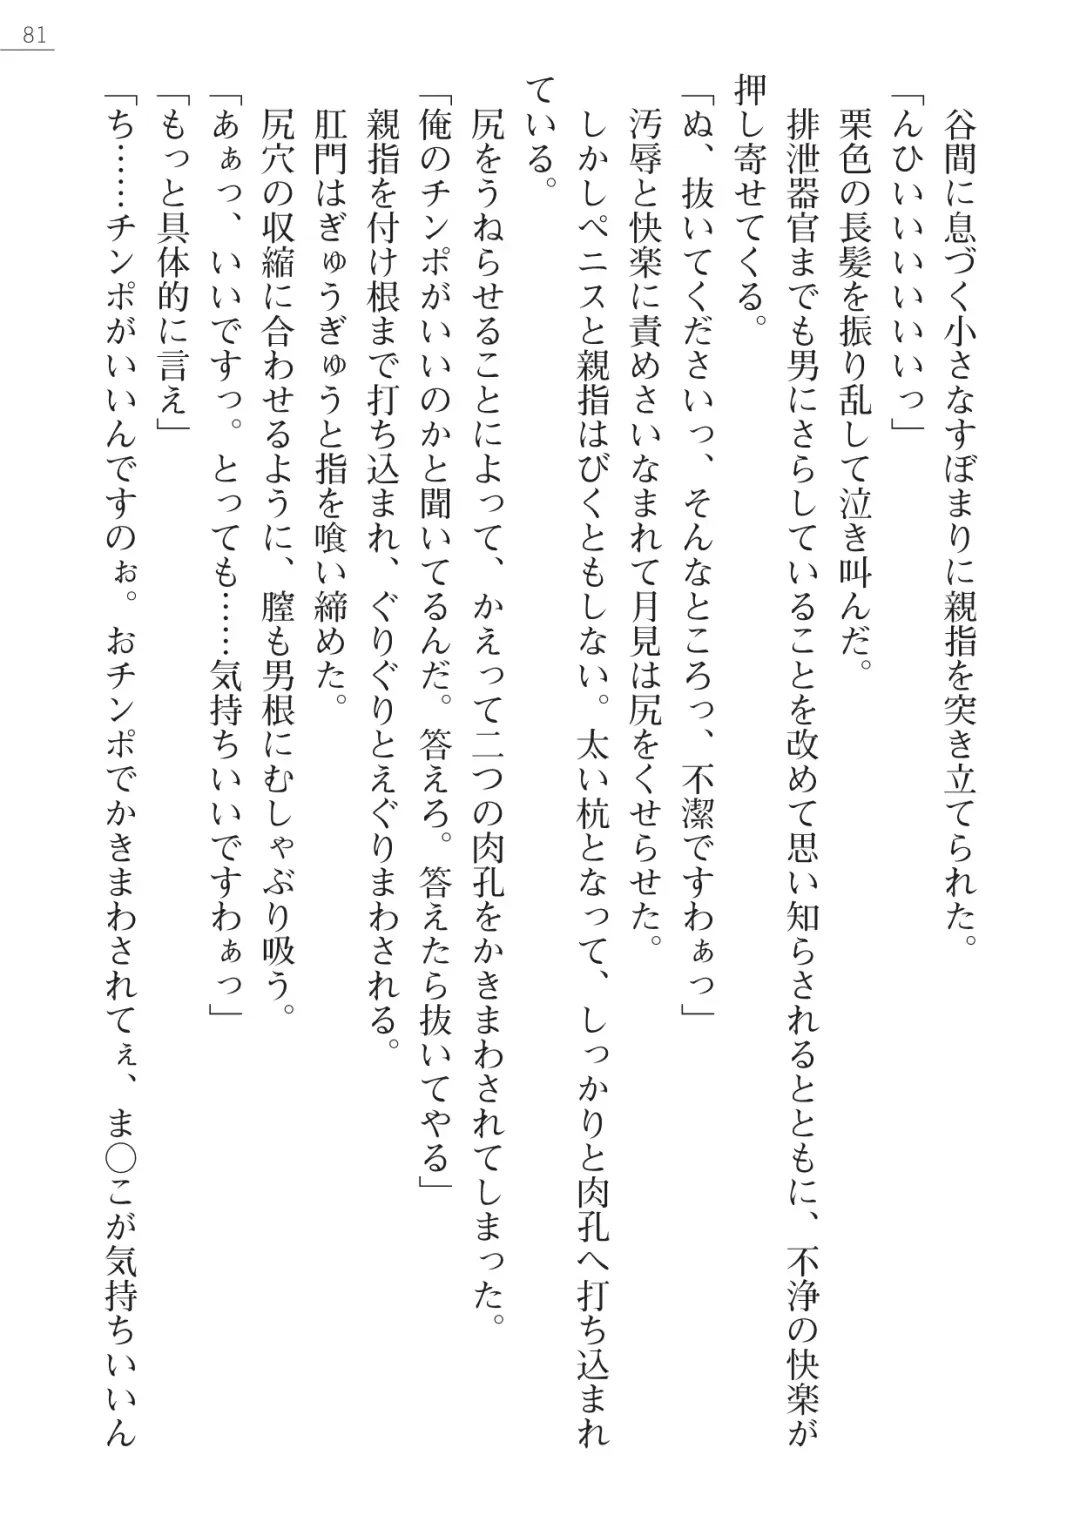 81
谷間に息づく小さなすぼまりに親指を突き立てられた。
「んひいいいいいいっ」
栗色の長髪を振り乱して泣き叫んだ。
排泄器官までも男にさらしていることを改めて思い知らされるとともに、不浄の快楽が
押し寄せてくる。
「ぬ、抜いてくださいっ、そんなところっ、不潔ですわぁっ」
汚辱と快楽に責めさいなまれて月見は尻をくせらせた。
しかしペニスと親指はびくともしない。太い杭となって、しっかりと肉孔へ打ち込まれ
ている。
尻をうねらせることによって、かえって二つの肉孔をかきまわされてしまった。
「俺のチンポがいいのかと聞いてるんだ。答えろ。答えたら抜いてやる」
親指を付け根まで打ち込まれ、ぐりぐりとえぐりまわされる。
肛門はぎゅうぎゅうと指を喰い締めた。
尻穴の収縮に合わせるように、膣も男根にむしゃぶり吸う。
「あぁっ、いいですっ。とっても……気持ちいいですわぁっ」
「もっと具体的に言え」
「ち……チンポがいいんですのぉ。おチンポでかきまわされてぇ、ま◯こが気持ちいいん